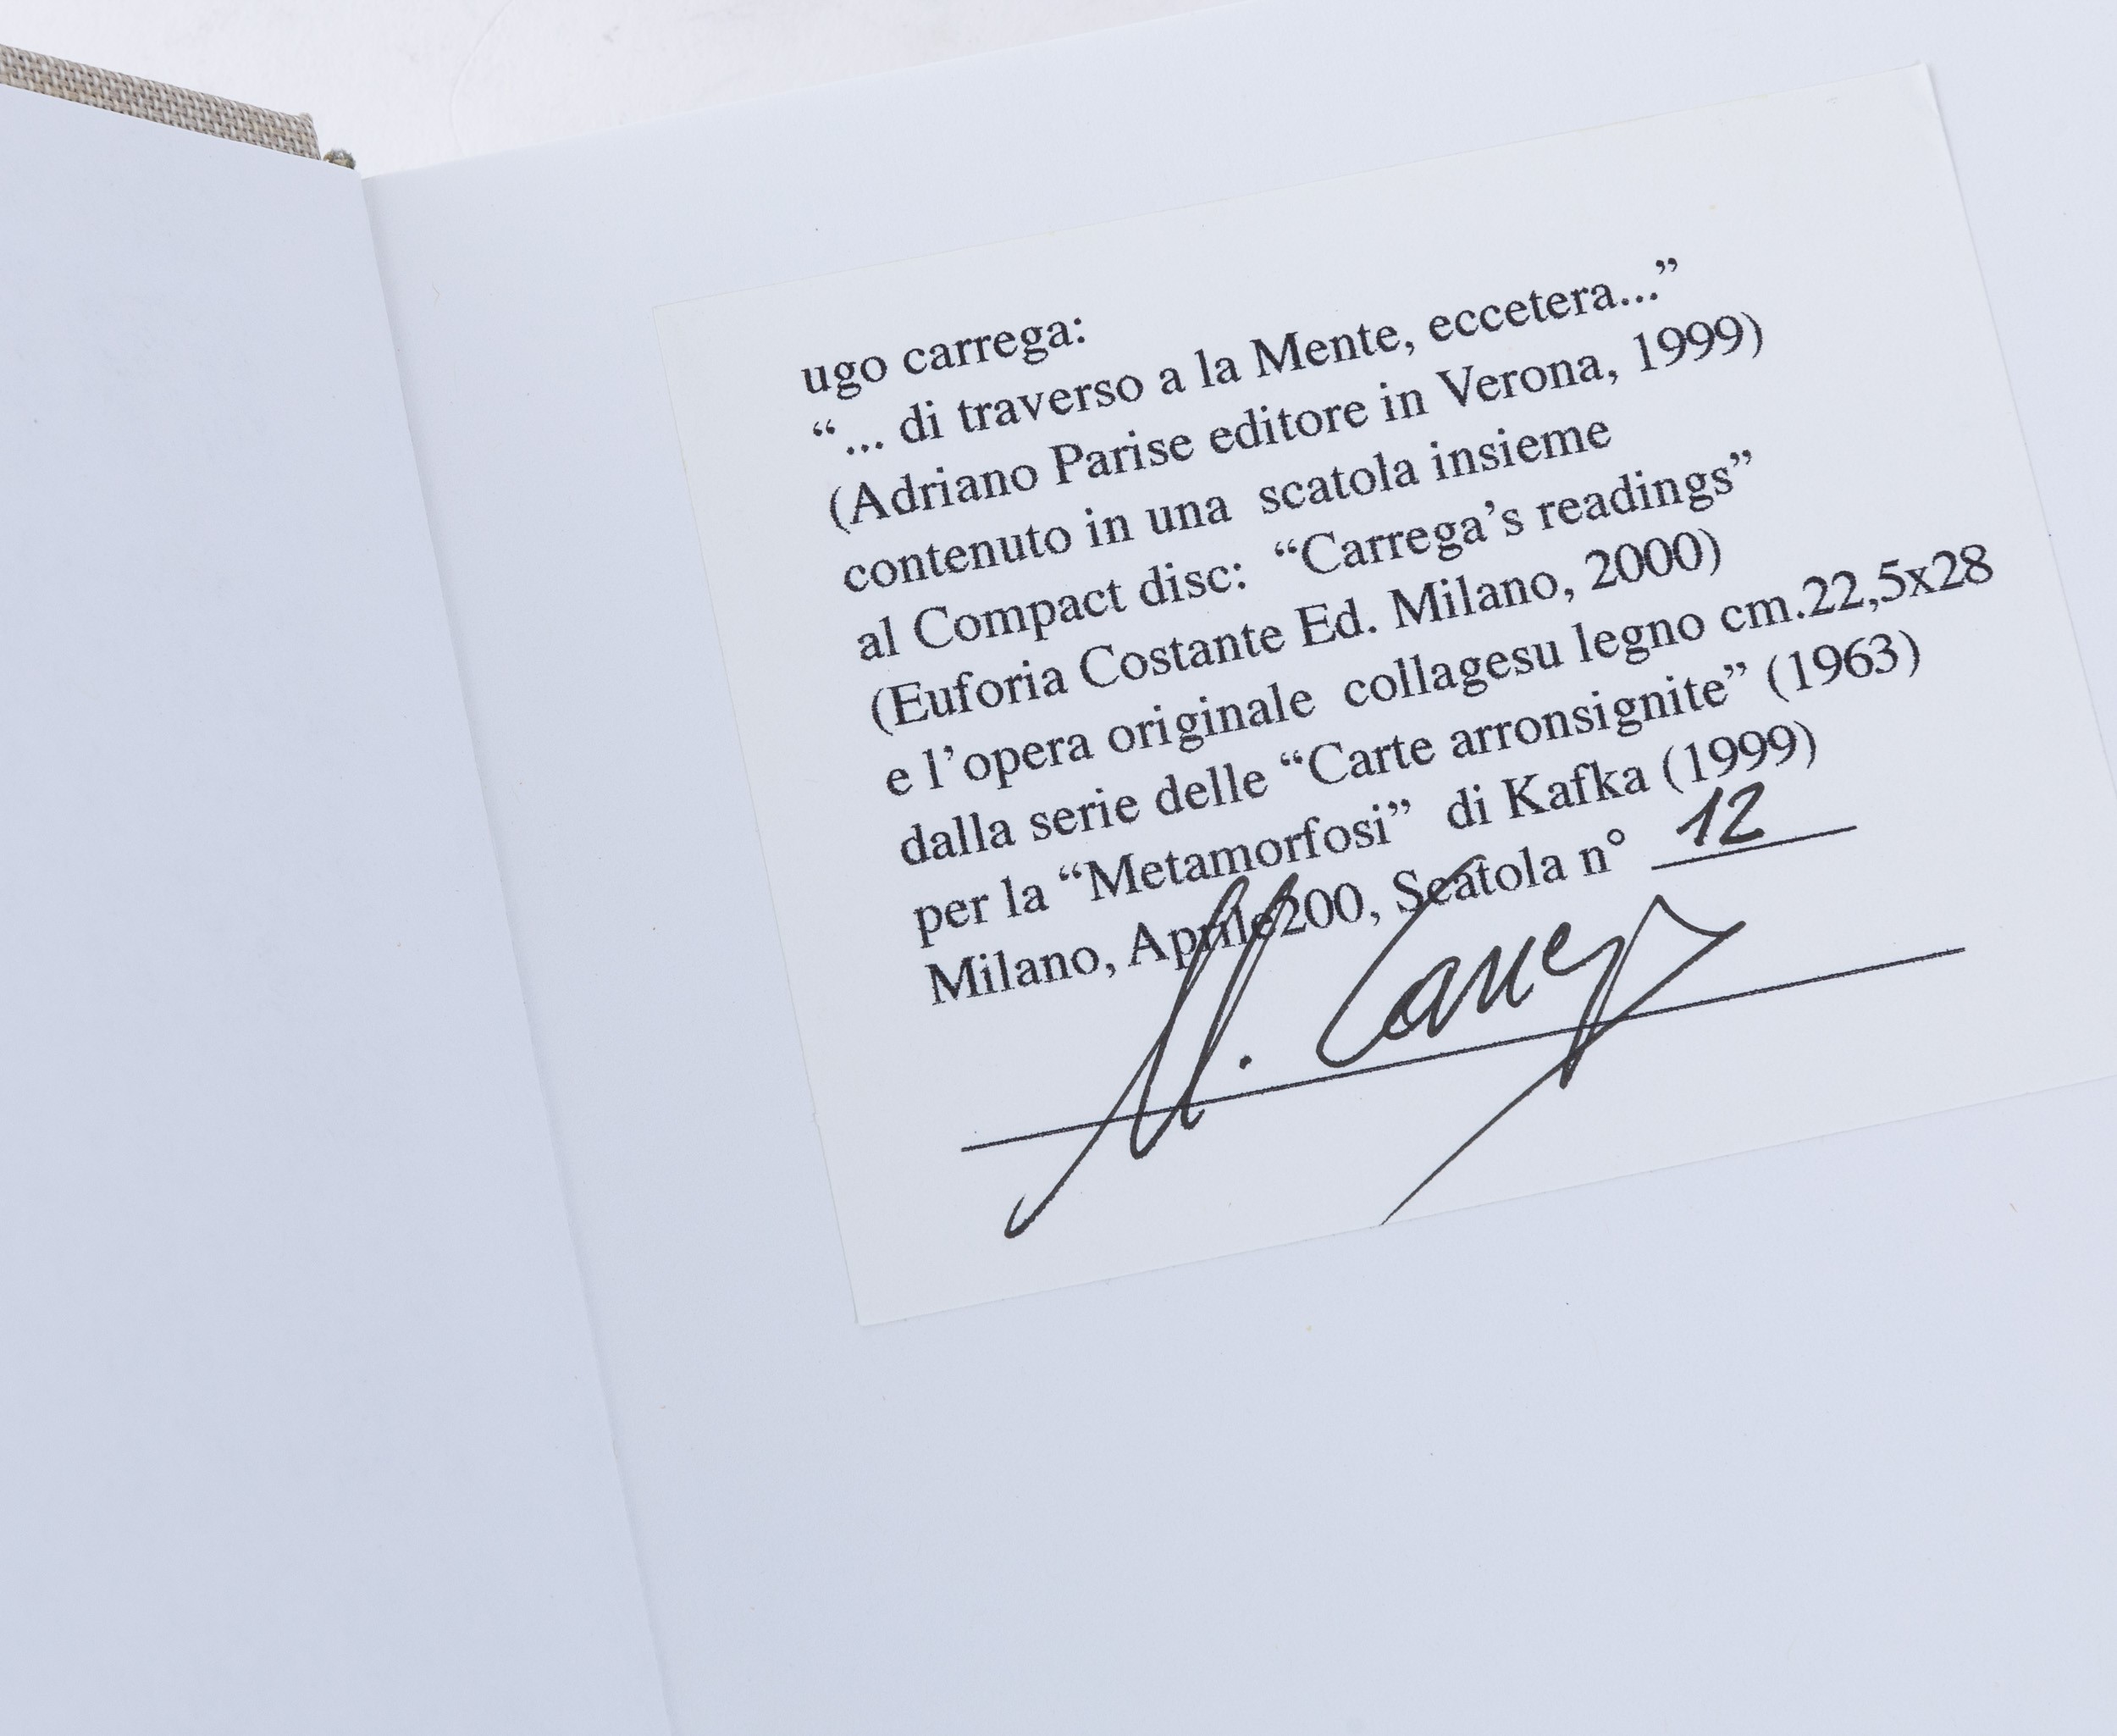 ugo carrega:
“... di traverso a la Mente, eccetera...”
(Adriano Parise editore in Verona, 1999)
contenuto in una scatola insieme
al Compact disc: “Carrega’s readings”
(Euforia Costante Ed. Milano, 2000)
e l’opera originale collagesu legno cm.22,5x28
dalla serie delle “Carte arronsignite” (1963)
per la “Metamorfosi” di Kafka (1999)
Milano, Aprile200, Scatola n° 12
U. Carrega